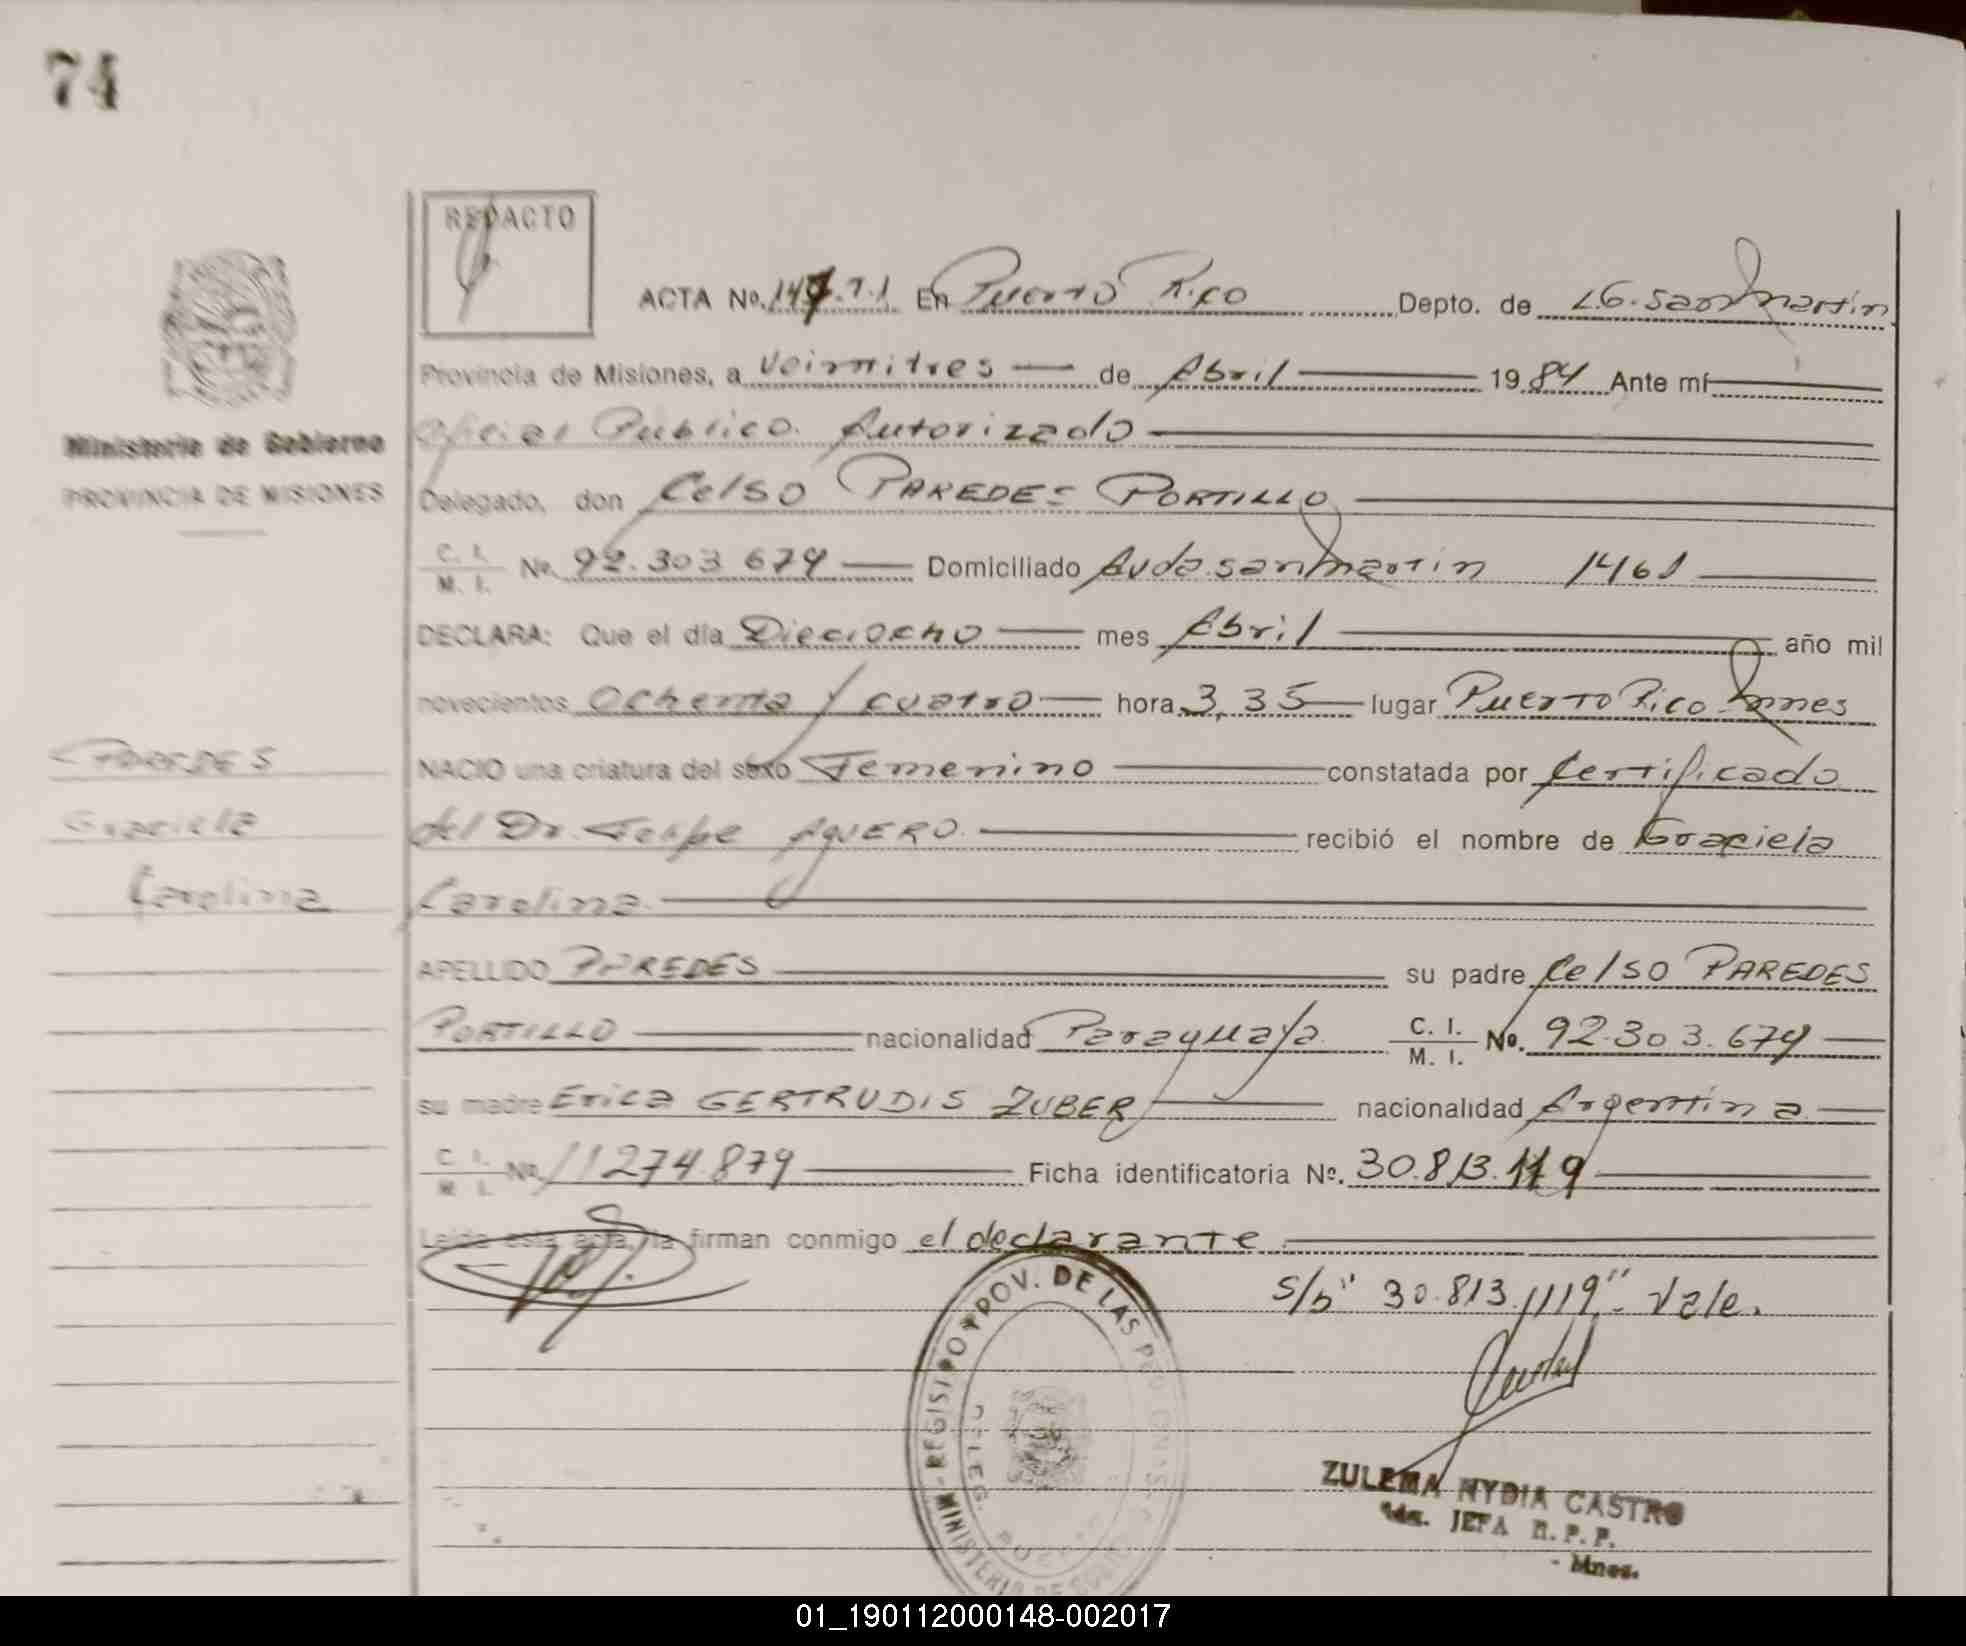 74
REDACTO
ACTA No. T.I En Puerto Rico Depto. de L.G. San Martin
Provincia de Misiones, a Veintitres de Abril 1984 Ante mí
Oficial Publico Autorizado
Ministerio de Gobierno
PROVINCIA DE MISIONES
Delegado, don Celso PAREDES PORTILLO
C. I. M. I. No. 92.303.679 Domiciliado Avda San Martin 1461
DECLARA: Que el día Dieciocho mes Abril año mil
novecientos Ochenta y cuatro hora 3,35 lugar Puerto Rico Mnes
NACIO una criatura del sexo Femenino constatada por Certificado
del Dr. Felipe AGUERO recibió el nombre de Graciela
Carolina
PAREDES
Graciela
Carolina
APELLIDO PAREDES su padre Celso PAREDES
PORTILLO nacionalidad Paraguaya C. I. M. I. No. 92.303.679
su madre Erica GERTRUDIS ZUBER nacionalidad Argentina
C. I. M. I. No. 11274.879 Ficha identificatoria No. 30.813.119
Leida esta acta, la firman conmigo el declarante
S/b" 30.813.119" Vale.
MINISTERIO DE GOBIERNO - REGISTRO PROV. DE LAS PERSONAS
DELEG. PUERTO
ZULEMA NYDIA CASTRO
JEFA R.P.P.
- Mnes.
01_190112000148-002017